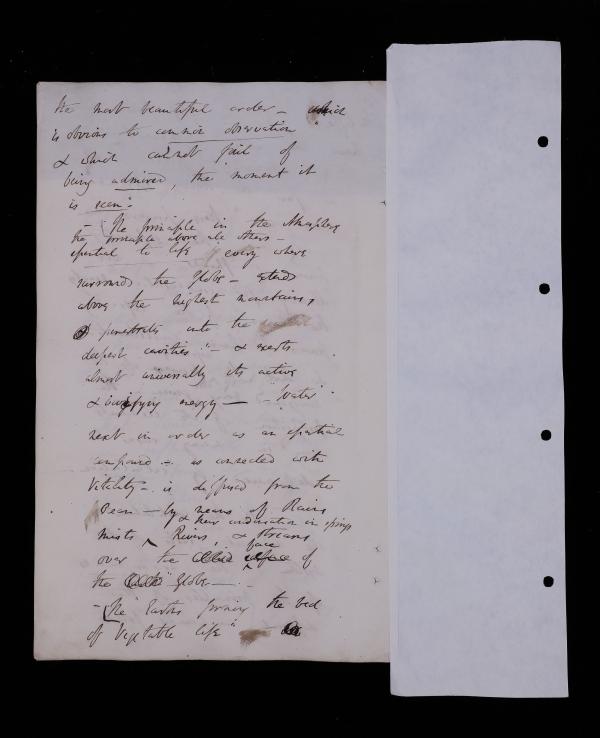 the most beautiful order - which
is obvious to common observation
& which cannot fail of
being admired, the moment it
is seen.
- The principle in the Atmosphere
the principle above all others -
essential to life every where
surrounds the globe - extends
above the highest mountains,
penetrates into the
deepest cavities - & exerts
almost universally its active
& vivifying energy - "Water"
next in order as an essential
compound - as connected with
Vitality - is diffused from the
Ocean - by means of Rains
& their condensation in springs
Mists Rivers, & streams
over the face of
the globe -
- The Earths forming the bed
of Vegetable life